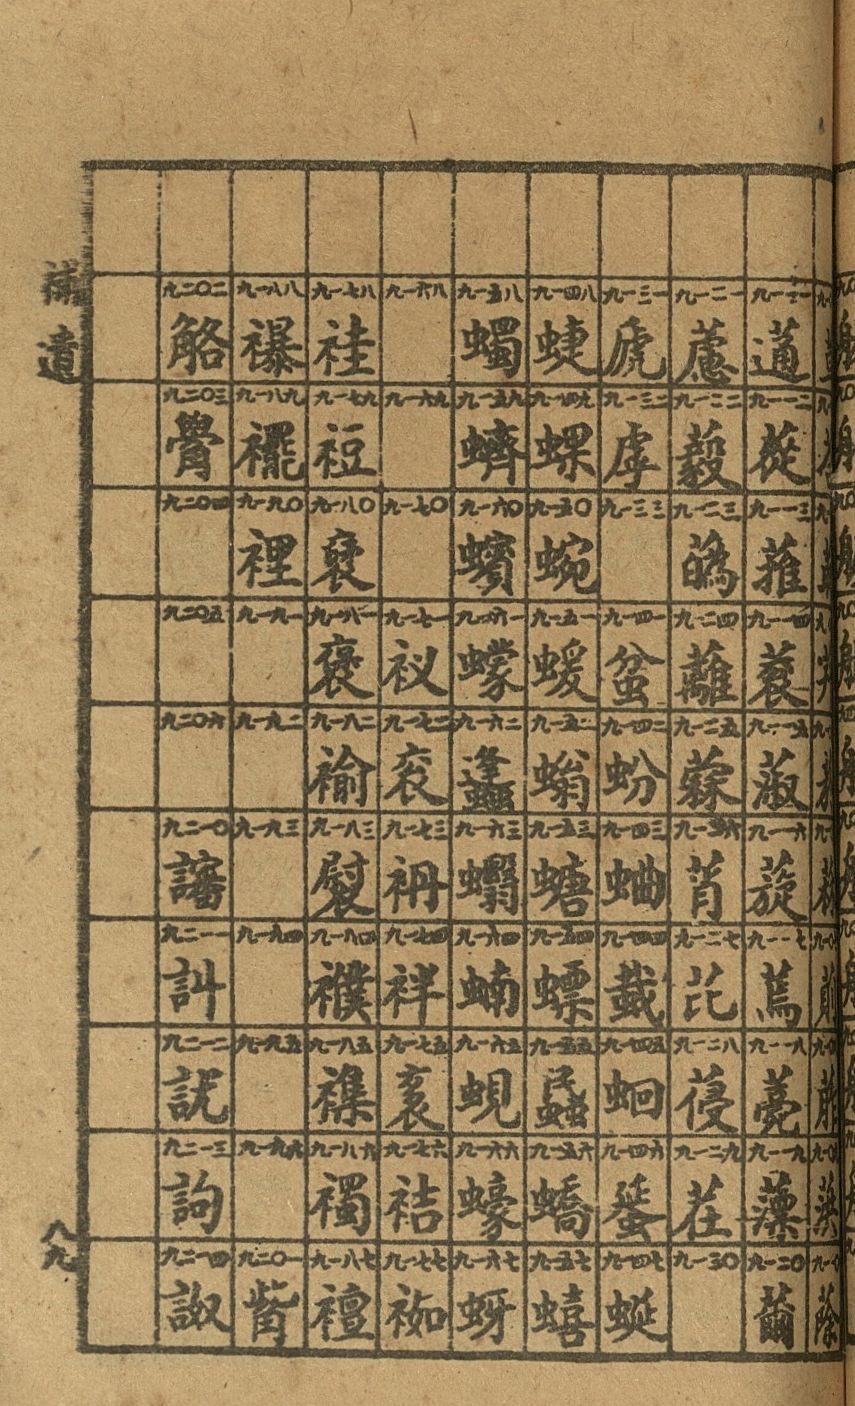 補遺
八九
九一一一
九一一二
九一一三 蓷
九一一四
九一一五
九一一六 蔙
九一一七 蔫
九一一八 薨
九一一九
九一二〇 薾
九一二一 藘
九一二二 藙
九一二三 蘤
九一二四 蘺
九一二五
九一二六
九一二七 芘
九一二八 葠
九一二九 茬
九一三〇
九一三一 虒
九一三二 虖
九一三三
九一四一 蚠
九一四二 蚡
九一四三 蛐
九一四四 蛓
九一四五 蛔
九一四六 蜑
九一四七 蜒
九一四八 蜨
九一四九 蜾
九一五〇 蜿
九一五一 蝯
九一五二 螉
九一五三 螗
九一五四 螵
九一五五 蟁
九一五六 蟜
九一五七 蟢
九一五八 蠋
九一五九 蠐
九一六〇 蠙
九一六一 蠓
九一六二 蠭
九一六三
九一六四 蝻
九一六五 蜆
九一六六 蠔
九一六七 蚜
九一六八
九一六九
九一七〇
九一七一 衩
九一七二 衮
九一七三 袡
九一七四 袢
九一七五
九一七六 袺
九一七七 袽
九一七八 袿
九一七九 裋
九一八〇
九一八一 褎
九一八二 褕
九一八三 褽
九一八四 襆
九一八五 襍
九一八六 襡
九一八七 襢
九一八八 襮
九一八九 襬
九一九〇 裡
九一九一
九一九二
九一九三
九一九四
九一九五
九一九六
九二〇一 觜
九二〇二 觡
九二〇三 觷
九二〇四
九二〇五
九二〇六
九二一〇
九二一一 訆
九二一二 訧
九二一三 訽
九二一四 諔